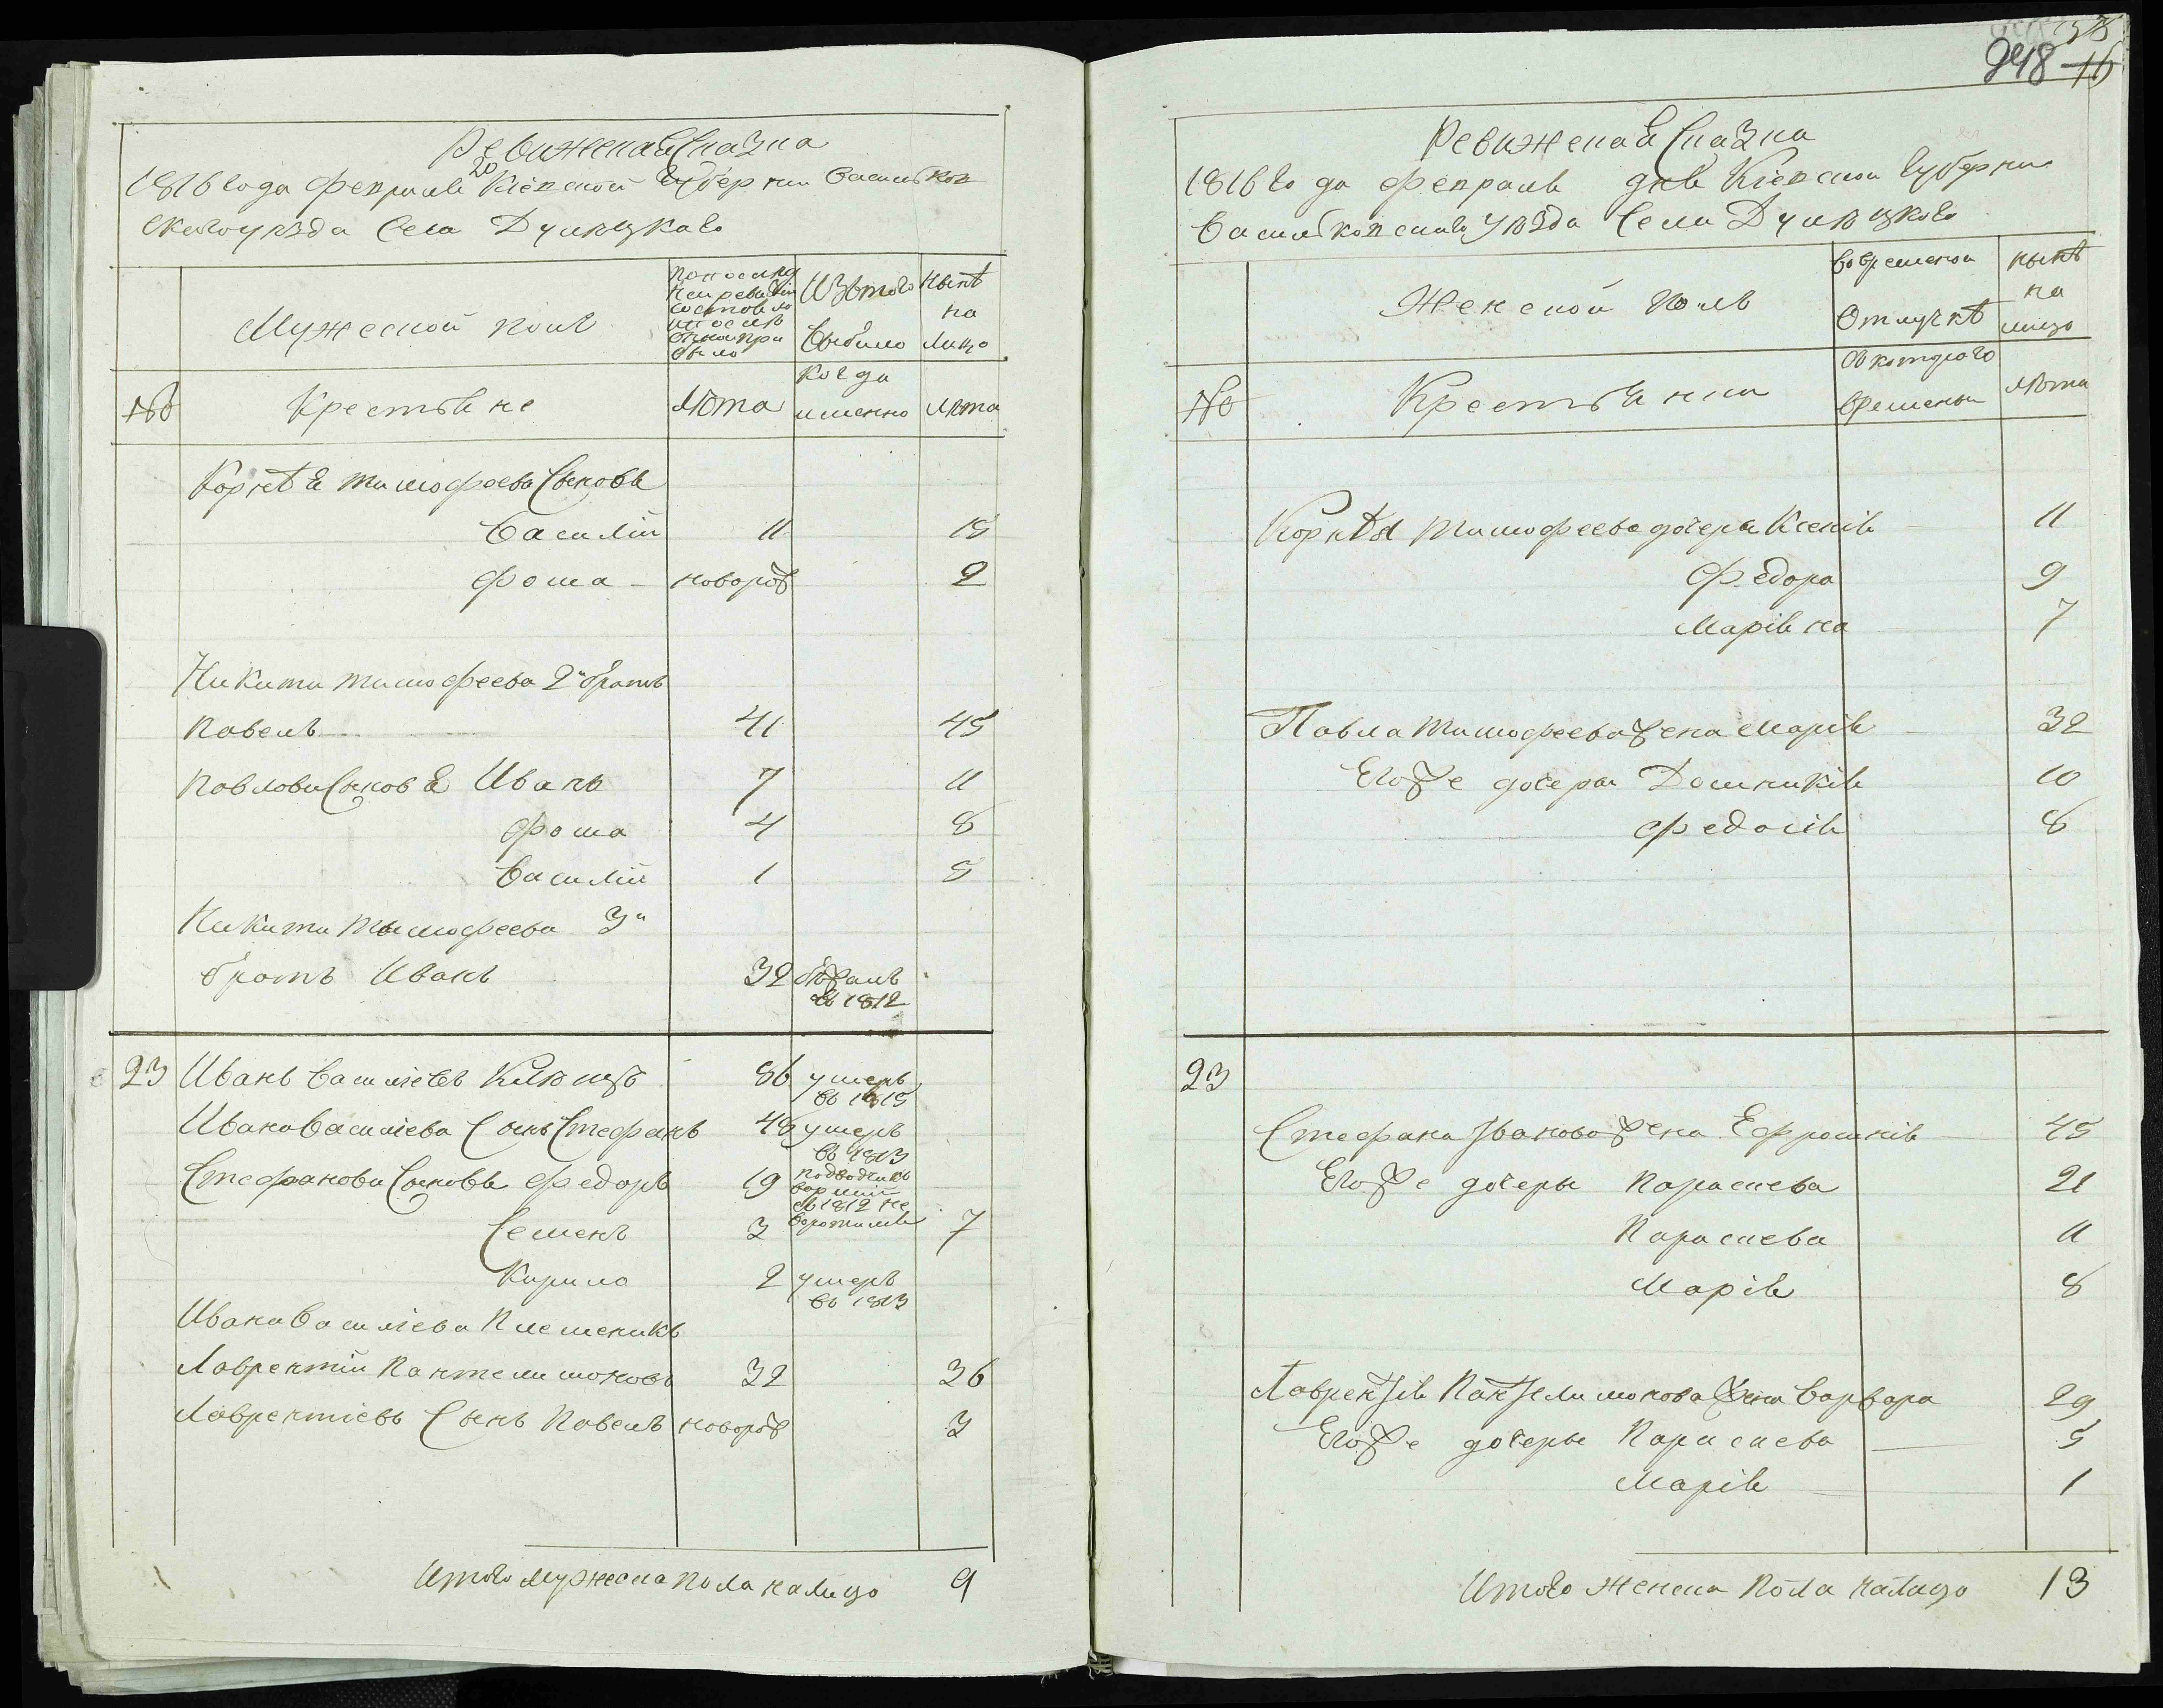 Ревижская Сказка
1816 года Февраля 20 Кіевской Губерніи Васильков
скаго уезда Села
Мужеской полъ
По последней ревизіи состояло и после оной прибыло
Изътого Выбыло
Ныне на лицо
№
Крестьяне
Лѣта
Когда именно
Лѣта
Корнѣя Тимофеева Сыновья
Василій 11 15
Фома новорож 2
Никиты Тимофеева 2й братъ
Павелъ 41 45
Павлови Сыновья Иванъ 7 11
Фома 4 8
Василій 1 5
Никиты Тимофеева 3й
братъ Иванъ 32 бѣжалъ въ 1812
23 Иванъ Василіевъ 86 умеръ въ 1815
Ивана Василіева Сынъ Стефанъ 48 умеръ въ 1813
Стефанови Сыновья Федоръ 19 подводчикъ в арміи въ 1812 не воротился
Семенъ 3 7
Кирило 2 умеръ въ 1813
Ивана Василіева Племеникъ
Лаврентій Пантелимоновъ 32 36
Лаврентіевъ Сынъ Павелъ новорож 3
Итого мужеска пола налицо 9
248 16
Ревижская Сказка
1816 года Февраля дня Кіевской Губерніи
Васильковскаго Уѣзда Села
Женской полъ
Вовременой Отлучкѣ
ныне на лицо
№
Крестьянки
Съ котораго времены
Лѣта
Корнѣя Тимофеева дочера Ксенія 11
Федора 9
Маріяна 7
Павла Тимофеева жена Марія 32
Егоже дочери Домникія 10
Федосія 8
23
Стефана Іванова жена Ефросинія 45
Егоже дочеры Параскева 21
Параскева 11
Марія 8
Лаврентія Пантелимонова жена Варвара 29
Егоже дочеры Параскева 5
Марія 1
Итого женска Пола налицо 13